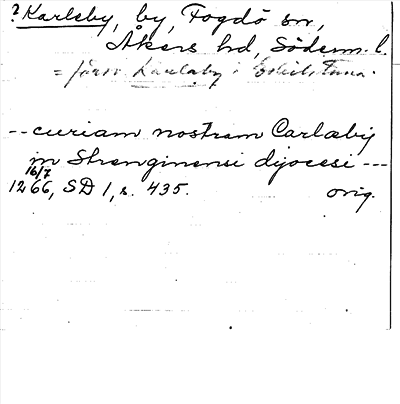 ? Karleby, by, Fogdö sn,
Åkers hd, Söderm. l.
= förr Karlaby i Eskilstuna.
-- curiam nostram Carlæby
in Strenginensi dyocesi ---
16/7
1266, SD 1, s. 435. orig.